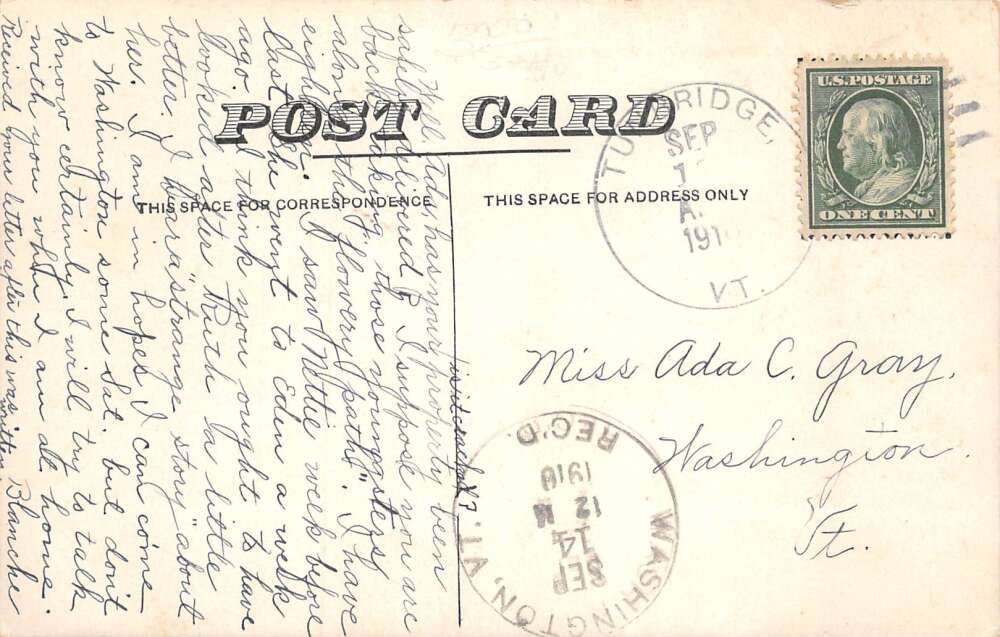 POST CARD
THIS SPACE FOR CORRESPONDENCE
THIS SPACE FOR ADDRESS ONLY
U.S. POSTAGE
ONE CENT
TUNBRIDGE,
SEP
1910
VT.
Miss Ada C. Gray.
Washington.
Vt.
WASHINGTON, VT.
SEP
14
12 M
1910
REC'D.
Well, Ada, has your property been
safely delivered? I suppose you are
back, taking those youngsters
along the "flowery paths". I have
eighteen. I saw Mottie week before
last. She went to Eden a week
ago. I think you ought to have
looked after Ruth a little
better. I hear a "strange story" about
her. I am in hopes I can come
to Washington some Sat. but don't
know certainly. I will try to talk
with you while I am at home.
Received your letter after this was written. Blanche